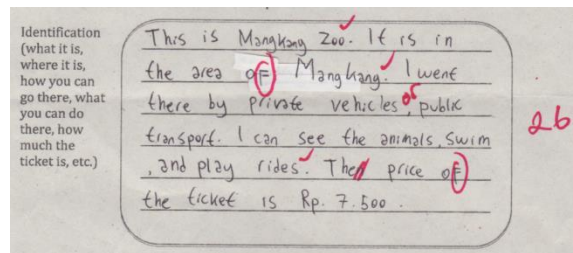 Identification
(what it is,
where it is,
how you can
go there, what
you can do
there, how
much the
ticket is, etc.)
This is Mangkang Zoo. It is in
the area oF Mangkang. I went
there by private vehicles or public
transport. I can see the animals, swim
, and play rides. The price oF
the ticket is Rp. 7.500.
26